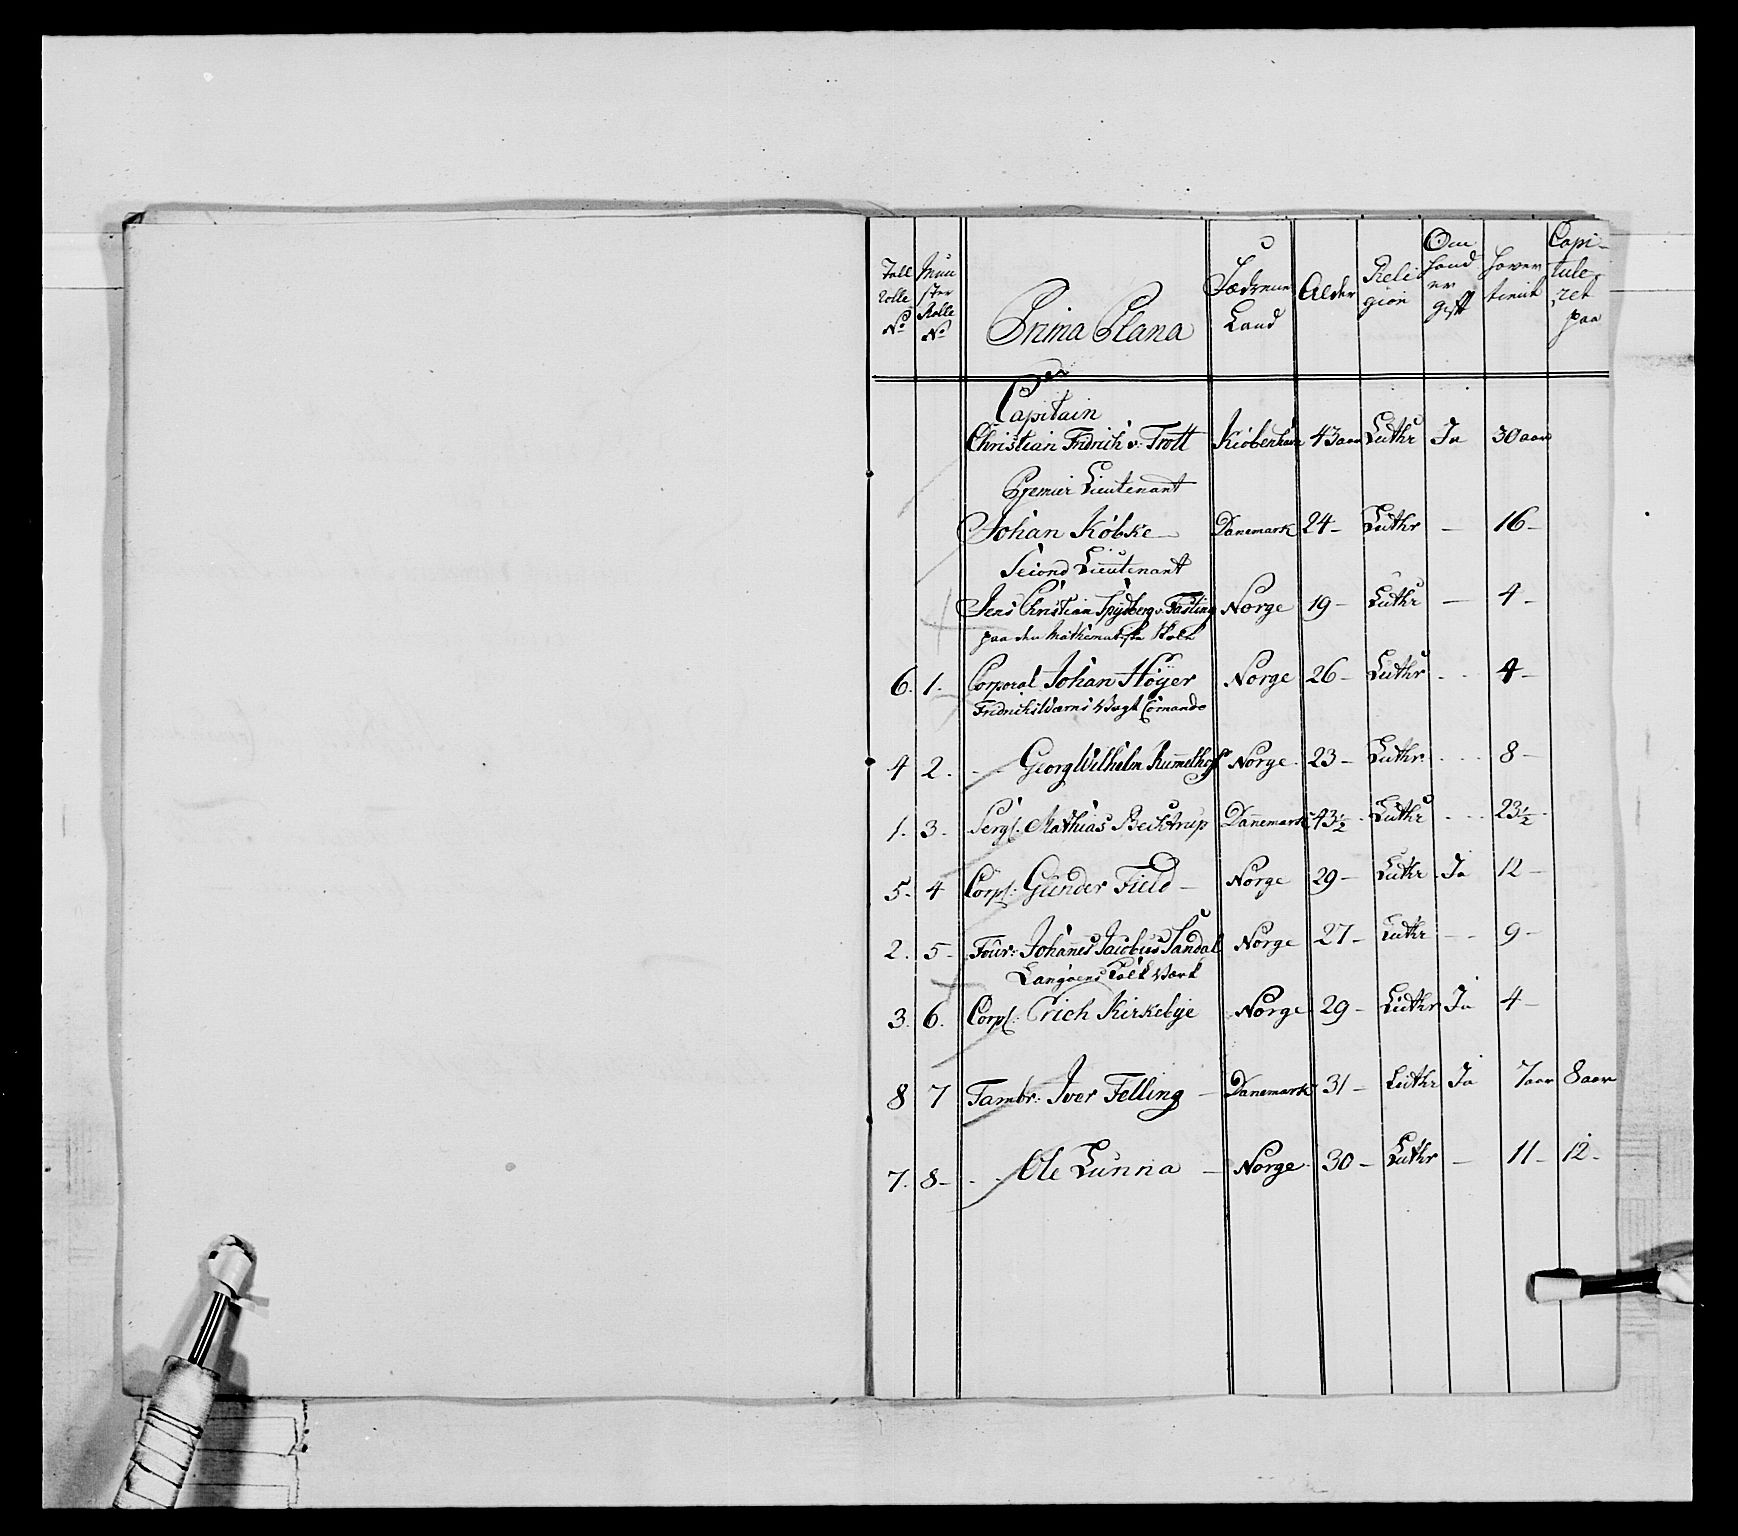 Tall Rolle No | Mun ster Rolle No | Prima Plana | Fædrene Land | Alder | Reli gion | Om hand er gift | hvor tient | Capi- tule- ret paa
Capitain
Christian Fridrich v: Trott | Kiöbenhavn | 43 aar | Luthr | Ja | 30 aar
Premier Lieutenant
Johan Köbke | Danemark | 24 - | Luthr | - | 16 -
Second Lieutenant
Jens Christian Spÿdberg v: Fasting | Norge | 19 - | Luthr | - | 4 -
paa den Mathematiske Skole
6. | 1. | Corporal Johan Höÿer | Norge | 26 - | Luthr | - - | 4 -
Fridrichsværns Vagt Comando
4 | 2. | - - Georg Wilhelm Rummelhof | Norge | 23 - | Luthr | - - | 8 -
1. | 3. | Sergt. Mathias Becktrup | Danemark | 43½ | Luthr | - - | 23½
5. | 4 | Corpl: Gunder Field - | Norge | 29 - | Luthr | Ja | 12 -
2. | 5 - | Four: Johannes Jacobus Sandal | Norge | 27 - | Luthr | - - | 9 -
Langöens Kalk Værk
3. | 6. | Corpl: Erich Kirkebye | Norge | 29 - | Luthr | Ja | 4 -
8 | 7 | Tambr: Iver Felling - | Danemark | 31 - | Luthr | Ja | 7 aar | 8 aar
7. | 8 - | - - Ole Lunna - | Norge | 30 - | Luthr | - | 11 - | 12 -